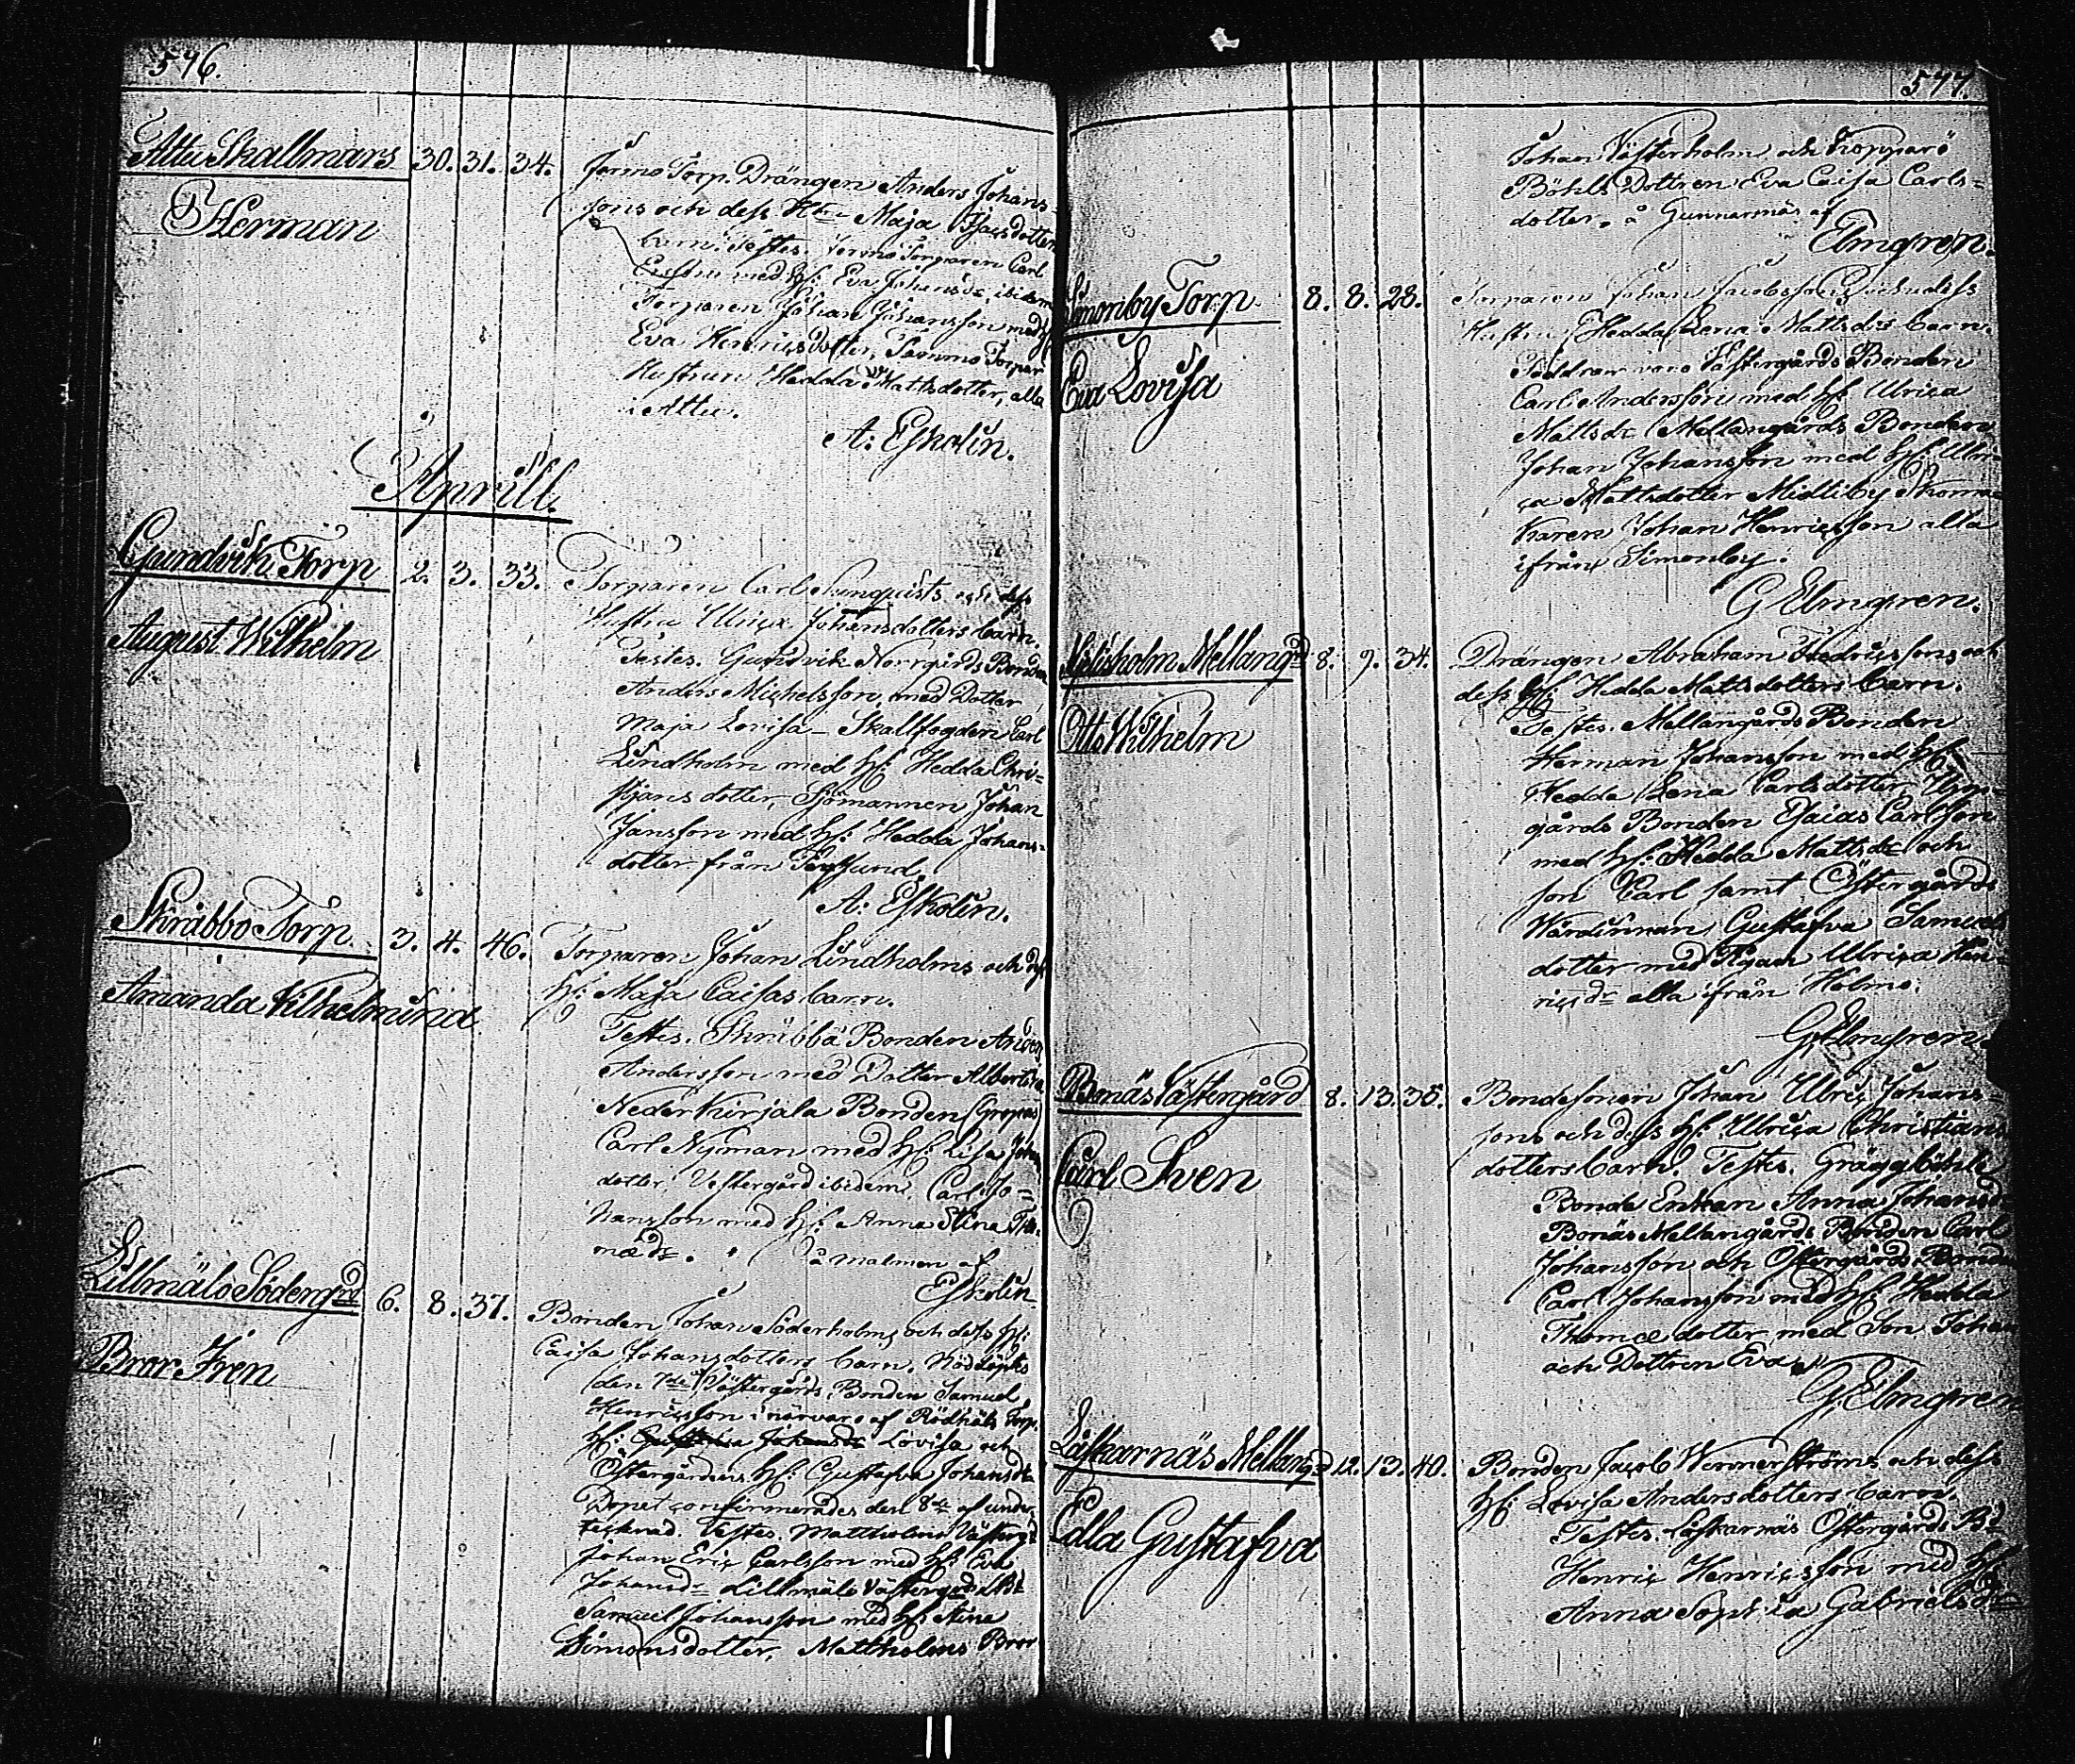 546.
Attu Skallmars 30. 31. 34. Jermo Torp. Drängen Anders Johans-
Herman
sons och dess Hu Maja Isacsdotters
barn. Testes. Jermo Torparen Carl
med Hs: Eva Johansdr, ibidem
Torparen Johan Johansson med Hs
Eva Henricsdotter, Sammo Torpar
Hustrun Hedda Mattsdotter, alla
i Attu.
A: Eskolin.
Aprill.
Gundvik Torp 2. 3. 33. Torparen Carl Sunqvists och dess
August Wilhelm
Hustru Ulrica Johansdotters barn.
Testes. Gundvik Norrgårds Bonden
Anders Michelsson, med Dotter
Maja Lovisa – Skallfogden Carl
Lindholm med Hs: Hedda Chri=
stjans dotter, Sjömannen Johan
Jansson med Hs: Hedda Johans-
dotter från
A: Eskolin.
Skräbbo Torp. 3. 4. 46. Torparen Johan Lindholms och dess
Amanda Vilhelmina
Hs: Maja Caisas barn.
Testes. Skräbbä Bonden Anders
Andersson med Dotter Albertina
Neder Kirjala Bonden (Gropas)
Carl Nyman med Hs: Lisa
dotter, Vestergård ibidem, Carl Jo=
hansson med Hs: Anna Stina Tho-
mædr. å Malmen af
Eskolin
Lillmälo Södergrd 6. 8. 37. Bonden Johan Söderholms och dess Hs:
Bror Iren
Caisa Johansdotters barn. Nöddöpts
den 7de Västergårds Bonden Samuel
Henricsson i närvaro af Rödhäls Torp.
Hs: Johansdr Lovisa och
Östergårdens Hs: Gustafva Johansdr
Dopet confirmerades den 8de af under-
tecknad. Testes. Mattholms Västergd
Johan Eric Carlsson med Hs: Eva
Johansdr Lillmälo Västergrd Bd
Samuel Johansson med Hs: Stina
Simonsdotter, Mattholms Bror
577.
Johan Västerholm och Kopparö
Böhls Dottren Eva Caisa Carls=
dotter. å Gunnarnäs af
Elmgren.
Simonby Torp. 8. 8. 28. Torparen Johan Jacobssons och dess
Eva Lovisa
Hustru Hedda Lena Mattsdrs barn.
Faddrar voro Västergårds Bonden
Carl Andersson med Hs: Ulrica
Mattsdr Mellangårds Bonden
Johan Johansson med Hs: Ulri-
ca Mattsdotter Midtiby Skoma-
karen Johan Henricsson alla
ifrån Simonby.
G Elmgren.
Mellangrd 8. 9. 34. Drängen Abraham Fredricssons och
Otto Wilhelm
dess Hs: Hedda Mattsdotters barn.
Testes. Mellangårds Bonden
Herman Johansson med Hs
Hedda Lena Carlsdotter, Upp-
gårds Bonden Esaias Carlsson
med Hs: Hedda Mattsdr och
son Carl samt Östergårds
Wärdinnan Gustafva Samuels
dotter med Pigan Ulrica Hen-
ricsdr alla ifrån Holmo.
G Elmgren.
Bonäs Västergård 8. 13. 35. Bondesonen Johan Ulric Johans-
Carl Sven
sons och dess Hs: Ulrica Christians
dotters barn. Testes. Gräggböhle
Bonde Enkan Anna Johansd
Bonäs Mellangårds Bonden Carl
Johansson och Östergårds Bonden
Carl Johansson med Hs: Hedda
Thomæ dotter med Son Johan
och Dottren Eva.
G. Elmgren
Läskarnäs Mellangd 12. 13. 40. Bonden Jacob Wennerströms och dess
Edla Gustafva
Hs: Lovisa Andersdotters barn.
Testes. Läskarnäs Östergårds Bd
Henric Henricsson med Hs:
Anna Sophia Gabrielsdr